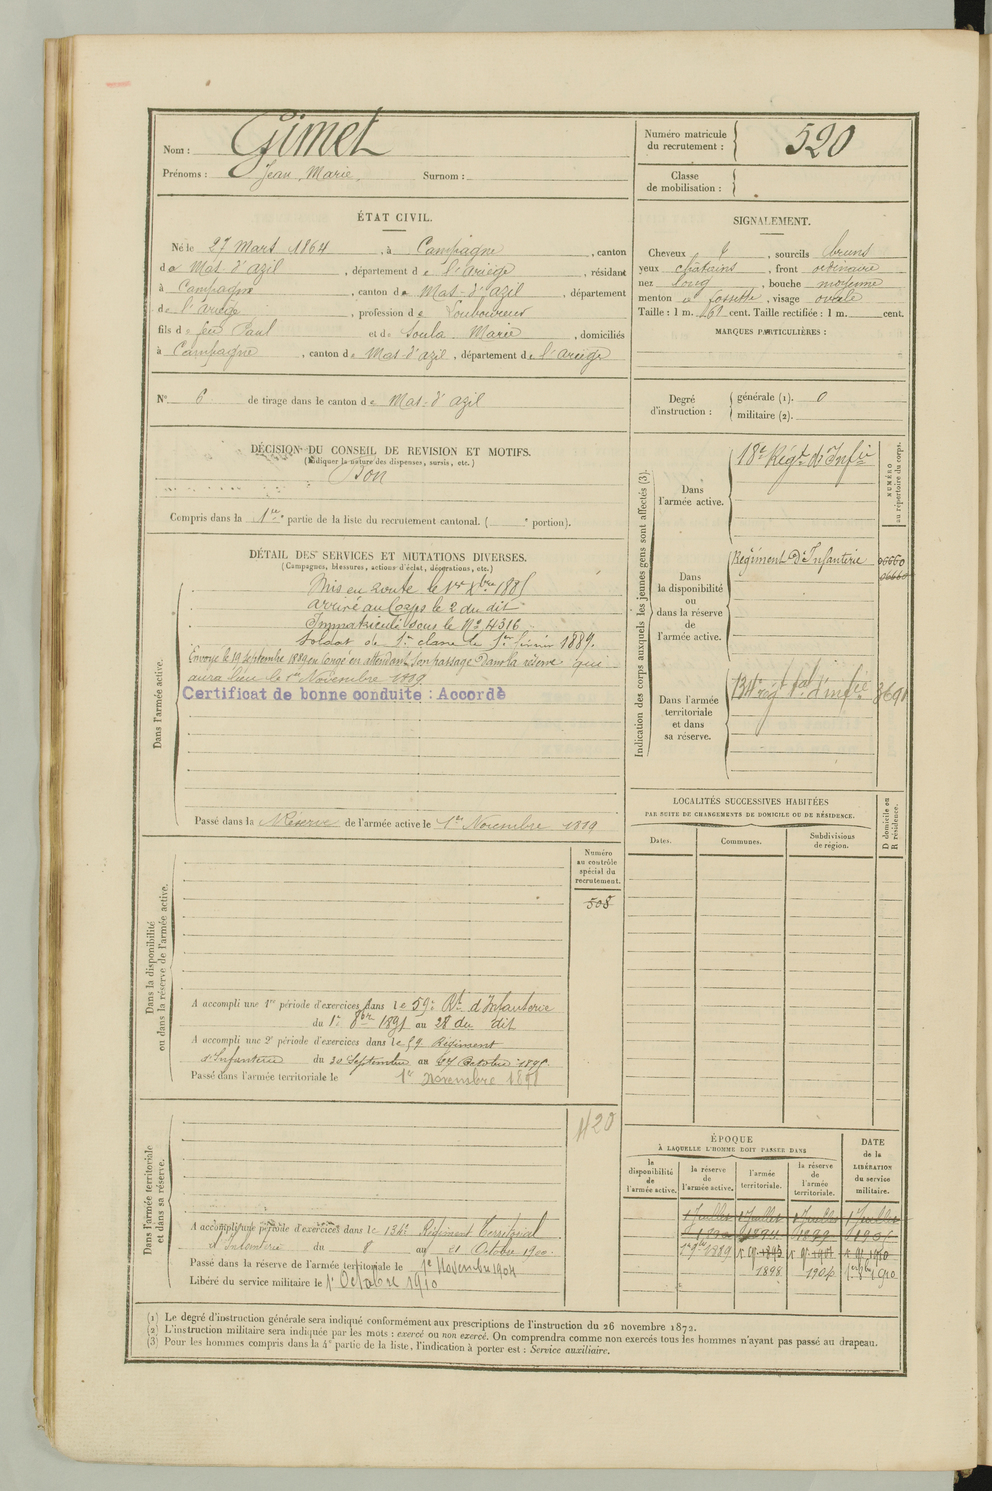 Nom : Gimet
Prénoms : Jean Marie. Surnom :
Numéro matricule du recrutement : 520
Classe de mobilisation :
ÉTAT CIVIL.
Né le 27 Mars 1864, à Campagne, canton
de Mas-d'azil, département de l'Ariège, résidant
à Campagne, canton de Mas-d'azil, département
de l'ariège, profession de Laboureur
fils de feu Paul et de Soula Marie, domiciliés
à Campagne, canton de Mas-d'azil, département de l'ariège
N° 6 de tirage dans le canton de Mas-d'azil
SIGNALEMENT.
Cheveux, sourcils bruns
yeux chatains, front ordinaire
nez long, bouche moyenne
menton à fossette, visage ovale
Taille : 1 m. 161 cent. Taille rectifiée : 1 m. cent.
MARQUES PARTICULIÈRES :
Degré d'instruction : générale (1). 0
militaire (2).
DÉCISION DU CONSEIL DE REVISION ET MOTIFS.
(Indiquer la nature des dispenses, sursis, etc.)
Bon
Compris dans la 1re partie de la liste du recrutement cantonal. ( e portion).
DÉTAIL DES SERVICES ET MUTATIONS DIVERSES.
(Campagnes, blessures, actions d'éclat, décorations, etc.)
Dans l'armée active.
Mis en route le 1er Xbre 1885
arrivé au Corps le 2 du dit
Immatriculé sous le N° 4316
Soldat de 1re classe le 1er février 1889.
Envoyé le 19 Septembre 1889 en Congé en attendant son passage dans la réserve qui
aura lieu le 1er Novembre 1889.
Certificat de bonne conduite : Accordé
Passé dans la Réserve de l'armée active le 1er Novembre 1889
Indication des corps auxquels les jeunes gens sont affectés (3).
NUMÉRO au répertoire du corps.
Dans l'armée active.
18e Régt d'Infie
Dans la disponibilité ou dans la réserve de l'armée active.
Régiment D'Infanterie
Dans l'armée territoriale et dans sa réserve.
134e rég. tal d'infie
LOCALITÉS SUCCESSIVES HABITÉES
PAR SUITE DE CHANGEMENTS DE DOMICILE OU DE RÉSIDENCE.
Dates. Communes. Subdivisions de région. D domicile ou R résidence.
Dans la disponibilité ou dans la réserve de l'armée active.
Numéro au contrôle spécial du recrutement.
508
A accompli une 1re période d'exercices dans le 59e Rt d'Infanterie
du 1er 8bre 1891 au 28 du dit
A accompli une 2e période d'exercices dans le 59 Régiment
d'Infanterie du 30 Septembre au 27 Octobre 1895.
Passé dans l'armée territoriale le 1er novembre 1898
Dans l'armée territoriale et dans sa réserve.
1120
A accompli une période d'exercices dans le 134e Régiment Territorial
d'Infanterie du 8 au 21 Octobre 1900.
Passé dans la réserve de l'armée territoriale le 1er Novembre 1904
Libéré du service militaire le 1er Octobre 1910
ÉPOQUE
À LAQUELLE L'HOMME DOIT PASSER DANS
la disponibilité de l'armée active. la réserve de l'armée active. l'armée territoriale. la réserve de l'armée territoriale. DATE de la LIBÉRATION du service militaire.
1 Juillet 1 Juillet 1 Juillet 1 Juillet
1890 1894 1899 1905
1er 9bre 1889
1898 1904 1910
(1) Le degré d'instruction générale sera indiqué conformément aux prescriptions de l'instruction du 26 novembre 1872.
(2) L'instruction militaire sera indiquée par les mots : exercé ou non exercé. On comprendra comme non exercés tous les hommes n'ayant pas passé au drapeau.
(3) Pour les hommes compris dans la 4e partie de la liste, l'indication à porter est : Service auxiliaire.